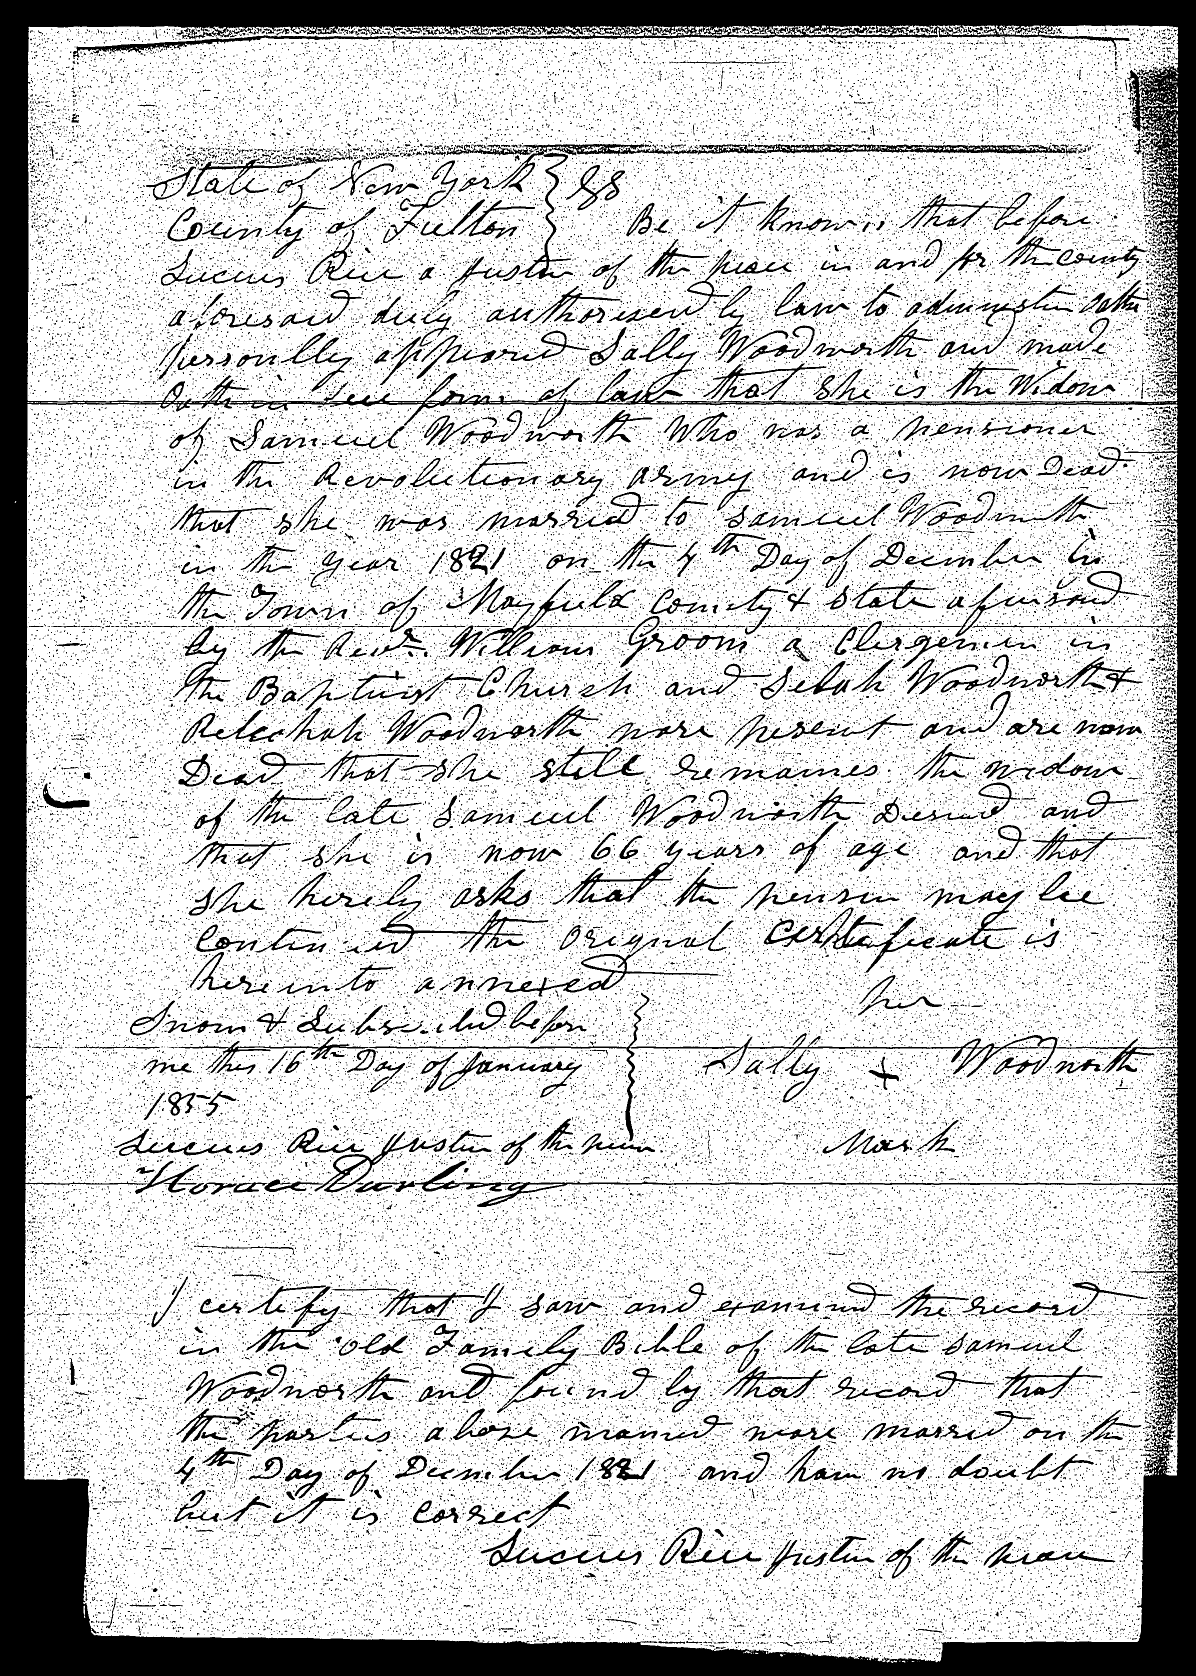 State of New York } SS
County of Fulton } Be it known that before
Lucius Rice a Justice of the peace in and for the county
aforesaid duly authorised by law to administer oaths
personlly appeared Sally Woodworth and made
Oath in due form of law that she is the Widow
of Samuel Woodworth who was a pensioner
in the Revolutionary army and is now Dead
that she was married to Samuel Woodworth
in the year 1821 on the 4th Day of December in
the Town of Mayfield County & State aforesaid
by the Revd. William Groom a Clergeman in
the Baptist Church and Selah Woodworth &
Rebechah Woodworth ware present and are now
Dead that she still remaines the widow
of the late Samuel Woodworth Desesed and
that she is now 66 years of age and that
she hereby asks that the pension may be
Continued the Orignal Certificate is
hereinto annexed
her
Sworn & Subscribed before
me this 16th Day of January } Sally + Woodworth
1855
Lucius Rice Justice of the peace Mark
Horace Darling
I certify that I saw and examined the record
in the old Family Bible of the late Samuel
Woodworth and found by that record that
the parties above named ware married on the
4th Day of December 1821 and have no doubt
but it is correct
Lucius Rice Justice of the peace